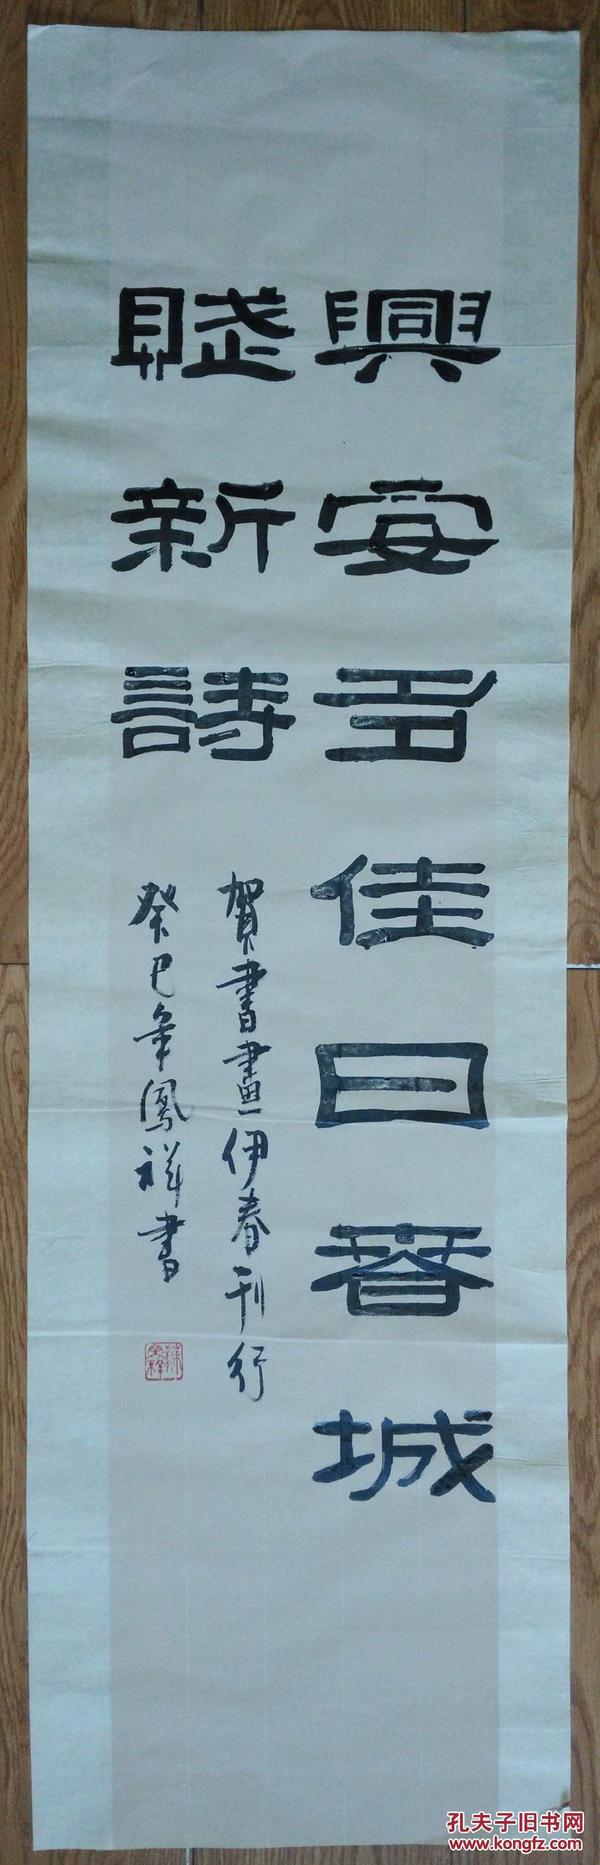 興安多佳日春城
賦新詩
賀書畫伊春刊行
癸巳年鳳祥書
孔夫子旧书网
www.kongfz.com